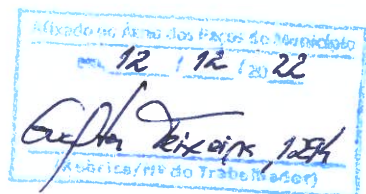 Afixado no Átrio dos Paços do Município
em 12 / 12 / 2022
Teixeira
(Rubrica/nº do Trabalhador)